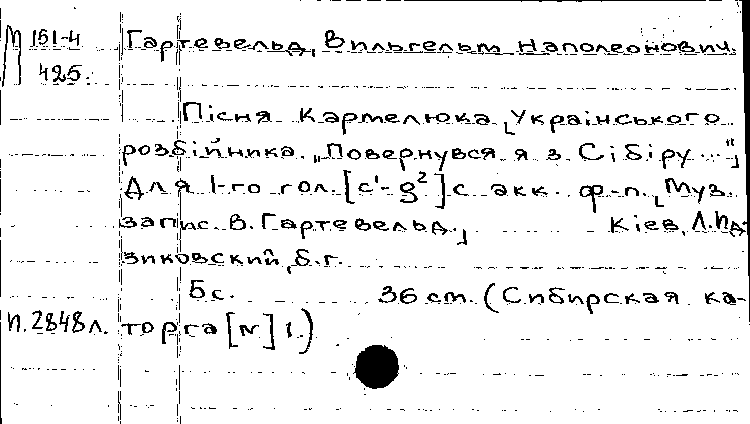 П 151-4 Гартевельд, Вильгельм Наполеонович.
425.
Пісня Кармелюка [Українського
розбійника. "Повернувся я з Сібіру..."]
Для 1-го гол. [c¹-g²] с акк. ф-п. [Муз.
запис. В. Гартевельд.] Кіев, Л. Ид-
зиковский, б.г.
5 с. 36 cm. (Сибирская ка-
п. 2848 л. торга [N] 1.)